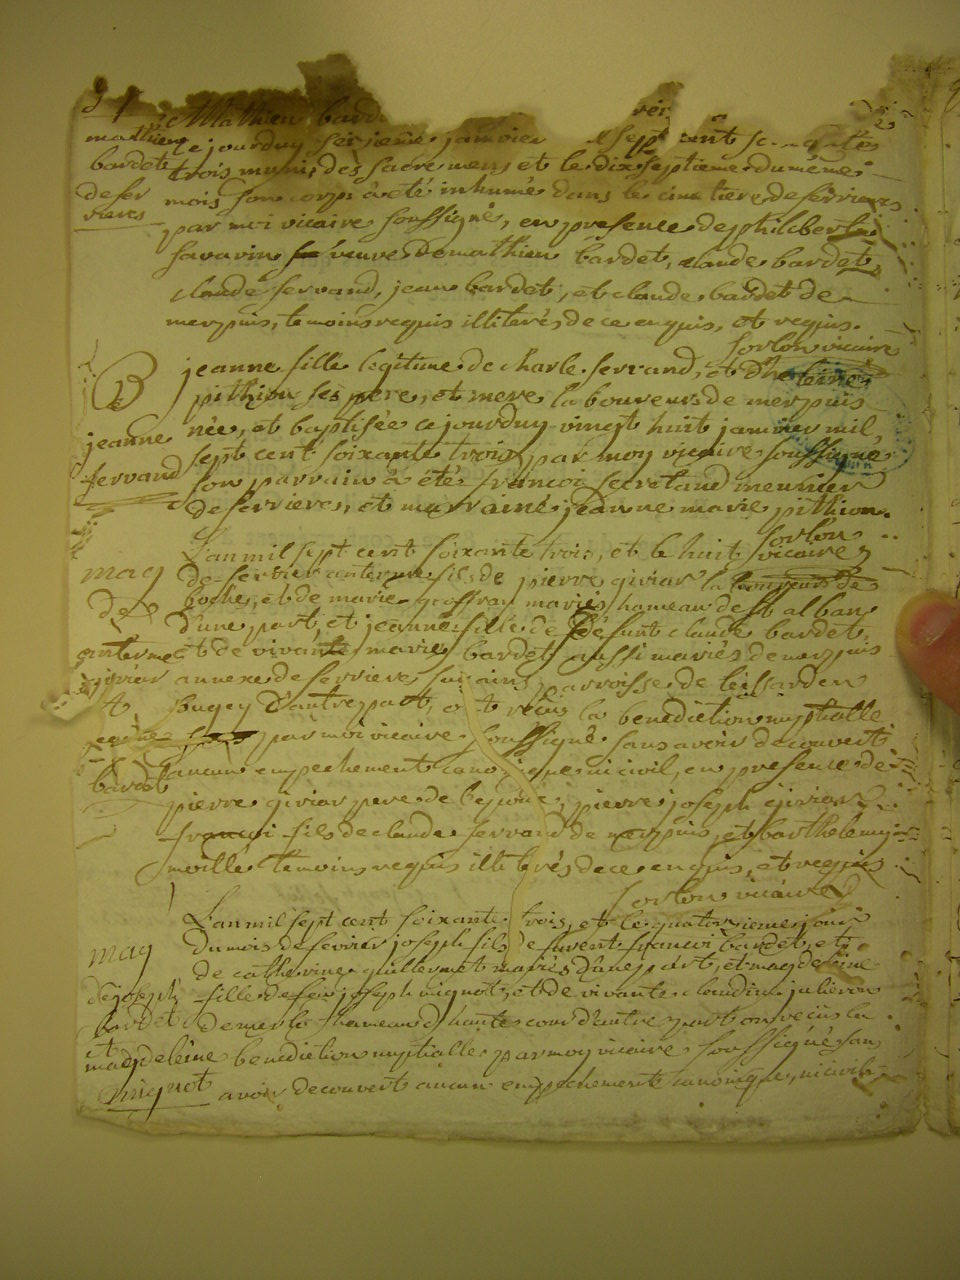 Mathieu bard
mathieu ce jourduy seizieme janvier sept cent
bardet trois muni des sacremens et le dix septieme du même
de fer mois son corps à été inhumé dans le cimetiere de ferrieres
rieres par moi vicaire soussigné, en presence de philiberte
savarin veuve de mathieu bardet, claude bardet
claude servand, jean bardet, et claude bardet de
merpuis, temoins requis illiterés de ce enquis, et requis.
sorlon vicaire
B jeanne fille legitime de charle servand, et
pithion ses pere, et mere laboureurs de merpuis
jeanne née, et baptisée cejourduy vingt huit janvier mil
sept cent soixante trois par moy vicaire soussigné
servand son parrain à été françoi secretand meunier
de serrieres, et marraine jeanne marie pithion.
sorlon
L'an mil sept cent soixante trois, et le huit vicaire
mag de fevrier anterme fils de pierre giriar
de boche, et de marie geoffray mariés hameau de st alban
d'une part, et jeanne fille de défunt claude bardet,
anterme et de vivante marie bardet aussi mariés de merpuis
giriar annexe de serriere sur ains parroisse de
et bugey d'autre part, ont reçu la benediction nuptialle
par moi vicaire soussigné sans avoir decouvert
aucun empechement canonique, ni civil, en presence de
bardet
pierre giriar pere de l'epoux, pierre joseph giriar
françoi fils de claude servand de merpuis, et barthelemy
moille temoins requis illiterés de ce enquis, et requis
sorlon vicaire
L'an mil sept cent soixante trois, et le quatorzieme jour
mag du mois de fevrier joseph fils de françoi bardet, et
de catherine guillermet mariés d'une part, et magdeleine
de joseph fille de feu joseph mignot, et de vivante claudine
bardet de merlo hameau d hautecour d'autre part on reçus la
et
magdeleine benediction nuptialle par moy vicaire soussigné san
mignot avoir decouvert aucun empechement canonique, ni civil